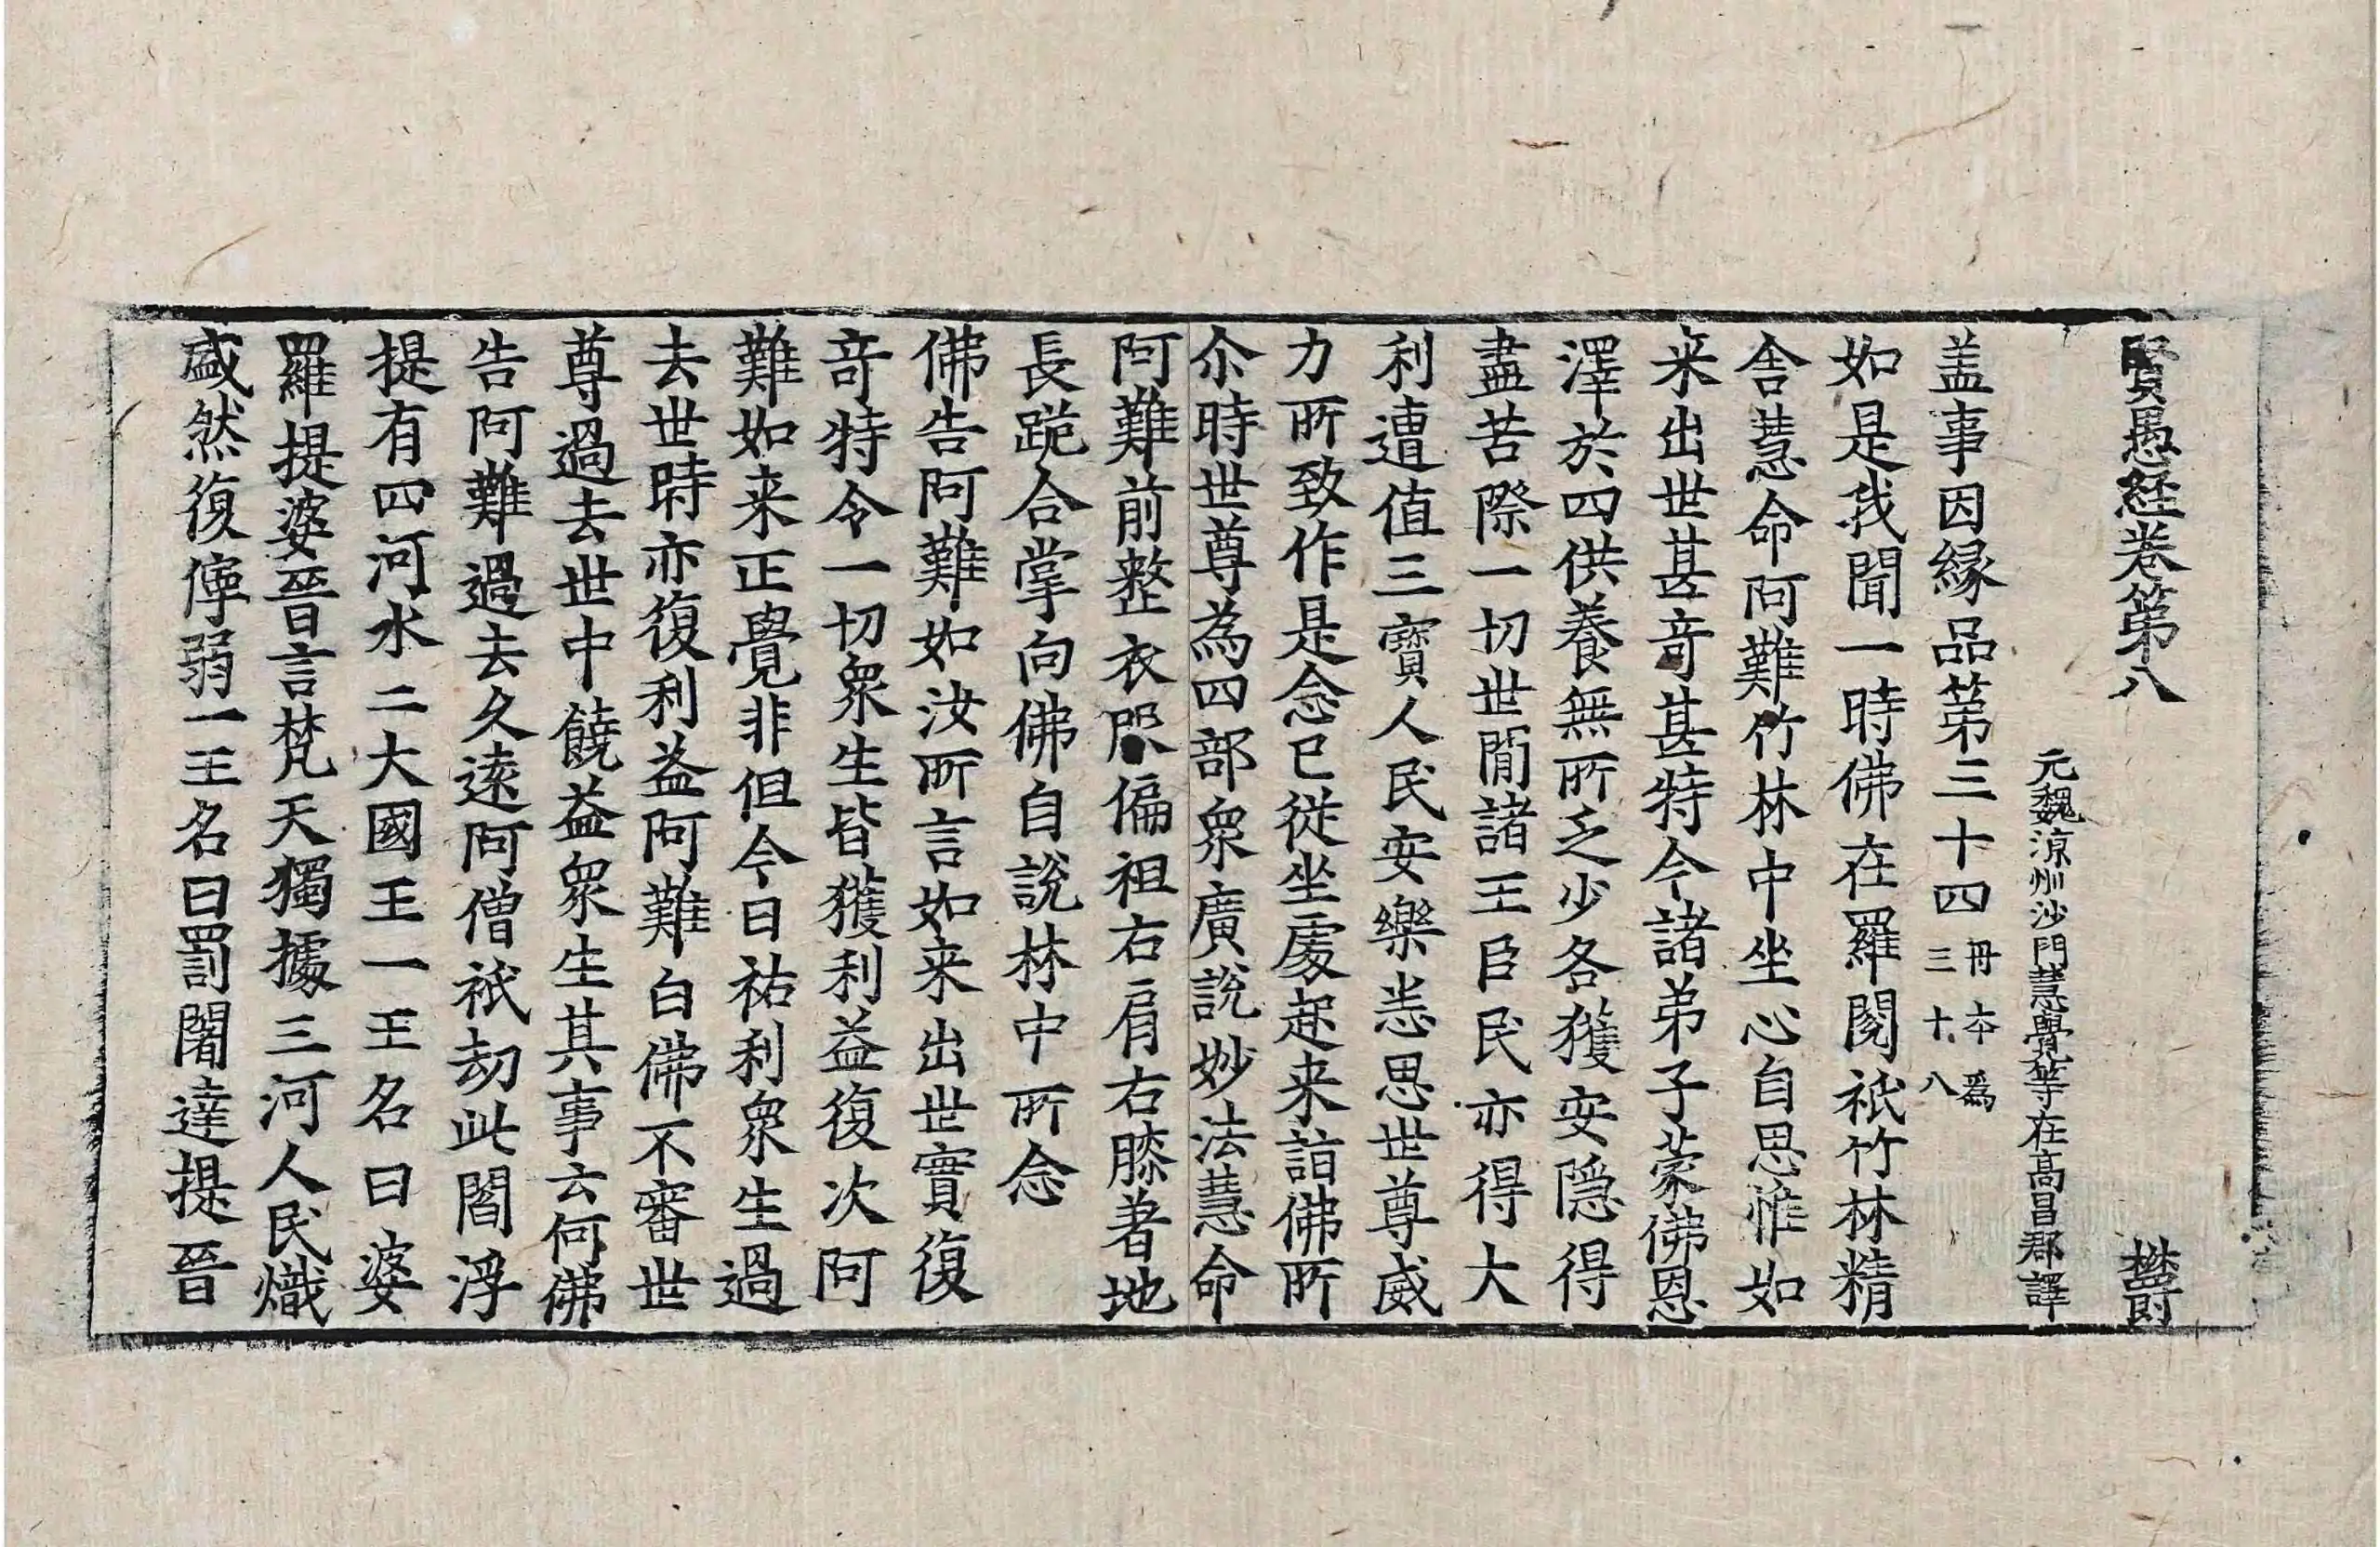 賢愚經卷第八 欝
元魏涼州沙門慧覺等在高昌郡譯
盖事因縁品第三十四 冊本爲三十八
如是我聞一時佛在羅閱祇竹林精
舍慧命阿難竹林中坐心自思惟如
来出世甚竒甚特今諸弟子蒙佛恩
澤於四供養無所乏少各獲安隱得
盡苦際一切世閒諸王臣民亦得大
利遭值三寶人民安樂恙思世尊威
力所致作是念已從坐處起来詣佛所
尒時世尊為四部衆廣說妙法慧命
阿難前整衣服偏袒右肩右膝著地
長跪合掌向佛自說林中所念
佛告阿難如汝所言如来出世實復
竒特令一切衆生皆獲利益復次阿
難如来正覺非但今日祐利衆生過
去世時亦復利益阿難白佛不審世
尊過去世中饒益衆生其事云何佛
告阿難過去久遠阿僧祇劫此閻浮
提有四河水二大國王一王名曰婆
羅提婆晉言梵天獨據三河人民熾
盛然復儜弱一王名曰罰闍達提晉